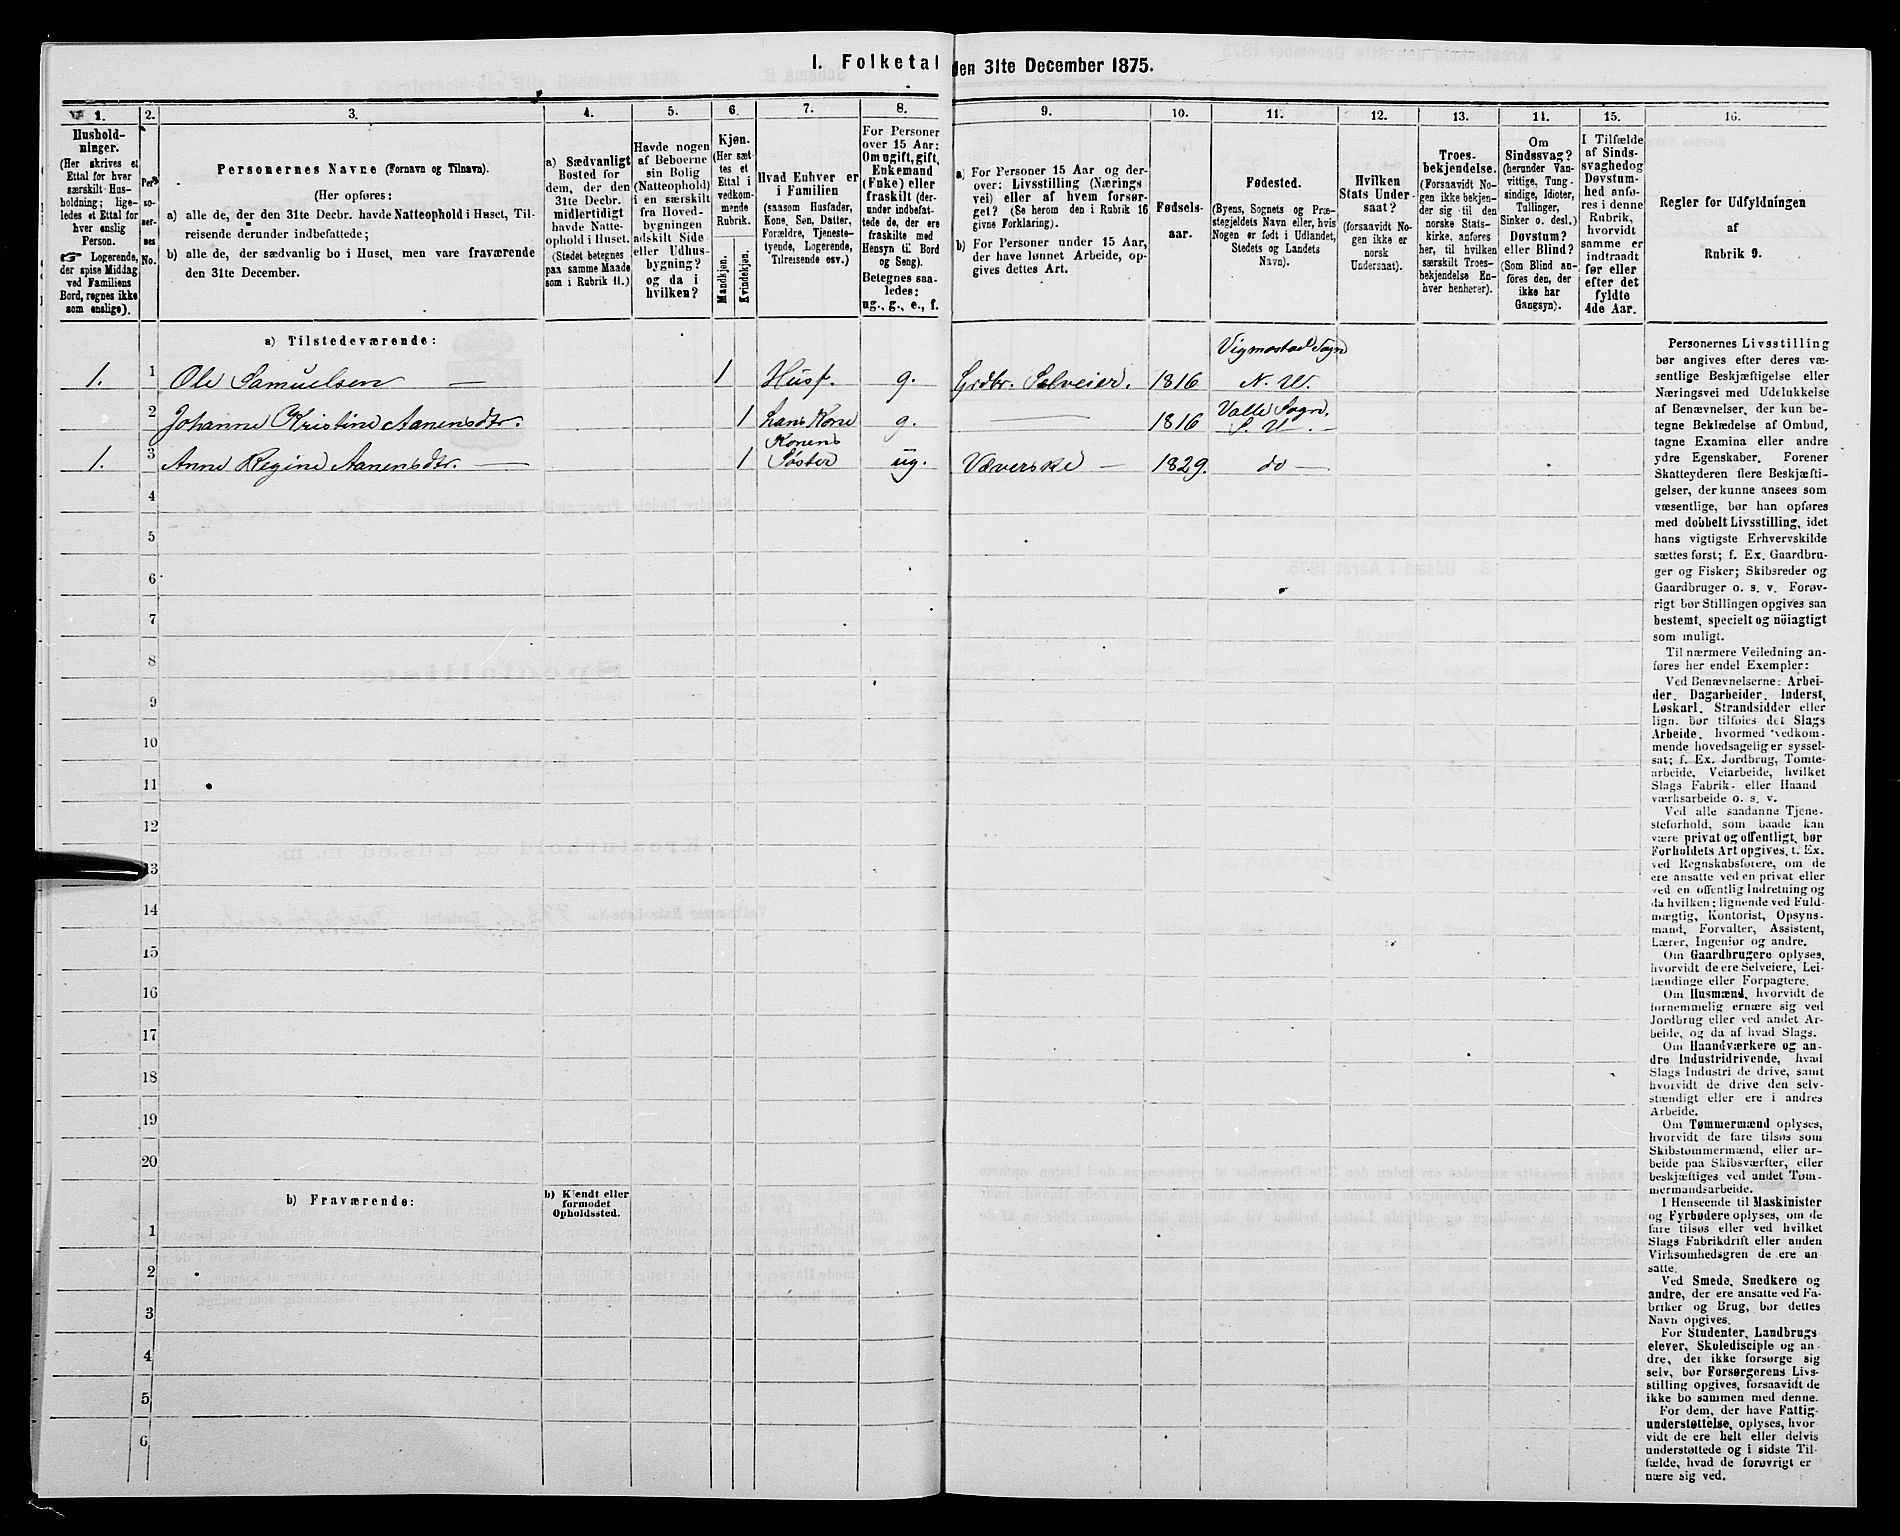 I. Folketal den 31te December 1875.
1.
Hushold-
ninger.
(Her skrives et
Ettal for hver
særskilt Hus-
holdning; lige-
ledes et Ettal for
hver enslig
Person.
☞ Logerende,
der spise Middag
ved Familiens
Bord, regnes ikke
som enslige).
2.
Per-
so-
ner-
nes
No.
3.
Personernes Navne (Fornavn og Tilnavn).
(Her opføres:
a) alle de, der den 31te Decbr. havde Natteophold i Huset, Til-
reisende derunder indbefattede;
b) alle de, der sædvanlig bo i Huset, men vare fraværende
den 31te December.
4.
a) Sædvanligt
Bosted for
dem, der den
31te Decbr.
midlertidigt
havde Natte-
ophold i Huset.
(Stedet betegnes
paa samme Maade
som i Rubrik 11.)
5.
Havde nogen
af Beboerne
sin Bolig
(Natteophold)
i en særskilt
fra Hoved-
bygningen
adskilt Side
eller Udhus-
bygning?
og da i
hvilken?
6.
Kjøn.
(Her sæt-
tes et
Ettal i
vedkom-
mende
Rubrik.
Mandkjøn.
Kvindekjøn.
7.
Hvad Enhver er
i Familien
(saasom Husfader,
Kone, Søn, Datter,
Forældre, Tjeneste-
tyende, Logerende,
Tilreisende osv.)
8.
For Personer
over 15 Aar:
Om ugift, gift,
Enkemand
(Enke) eller
fraskilt (der-
under indbefat-
tede de, der ere
fraskilte med
Hensyn til Bord
og Seng).
Betegnes saa-
ledes:
ug., g., e., f.
9.
a) For Personer 15 Aar og der-
over: Livsstilling (Nærings
vei) eller af hvem forsør-
get? (Se herom den i Rubrik 16
givne Forklaring).
b) For Personer under 15 Aar,
der have lønnet Arbeide, op-
gives dettes Art.
10.
Fødsels-
aar.
11.
Fødested.
(Byens, Sognets og Præ-
stegjeldets Navn eller, hvis
Nogen er født i Udlandet,
Stedets og Landets
Navn).
12.
Hvilken
Stats Under-
saat?
(forsaavidt No-
gen ikke er
norsk
Undersaat).
13.
Troes-
bekjendelse.
(Forsaavidt No-
gen ikke bekjen-
der sig til den
norske Stats-
kirke, anføres
her, til hvilken
særskilt Troes-
bekjendelse En-
hver henhører).
14.
Om
Sindssvag?
(herunder Van-
vittige, Tung-
sindige, Idioter,
Tullinger,
Sinker o. desl.)
Døvstum?
eller Blind?
(Som Blind an-
føres den, der
ikke har
Gangsyn).
15.
I Tilfælde
af Sinds-
svaghed og
Døvstum-
hed anfø-
res i denne
Rubrik,
hvorvidt
samme er
indtraadt
før eller
efter det
fyldte
4de Aar.
16.
Regler for Udfyldningen
af
Rubrik 9.
a) Tilstedeværende:
1. 1 Ole Samuelsen — 1 Husf. g. Grdbr. Selveier. 1816 Vigmostad Sogn N. U.
2 Johanne Kristine Aanensdtr. 1 hans Kone g. — 1816 Valle Sogn. S. U. —
1. 3 Anne Regine Aanensdtr. — 1 Konens Søster ug. Væverske — 1829. do —
4
5
6
7
8
9
10
11
12
13
14
15
16
17
18
19
20
b) Fraværende:
b) Kjendt eller
formodet
Opholdssted.
1
2
3
4
5
6
Personernes Livsstilling
bør angives efter deres væ-
sentlige Beskjæftigelse eller
Næringsvei med Udelukkelse
af Benævnelser, der kun be-
tegne Beklædelse af Ombud,
tagne Examina eller andre
ydre Egenskaber. Forener
Skatteyderen flere Beskjæfti-
gelser, der kunne ansees som
væsentlige, bør han opføres
med dobbelt Livsstilling, idet
hans vigtigste Erhvervskilde
sættes først; f. Ex. Gaardbru-
ger og Fisker; Skibsreder og
Gaardbruger o. s. v. Forøv-
rigt bør Stillingen opgives saa
bestemt, specielt og nöiagtigt
som muligt.
Til nærmere Veiledning an-
føres her endel Exempler:
Ved Benævnelserne: Arbei-
der, Dagarbeider, Inderst,
Løskarl, Strandsidder eller
lign. bør tilføies det Slags
Arbeide, hvormed vedkom-
mende hovedsagelig er syssel-
sat; f. Ex. Jordbrug, Tomte-
arbeide, Veiarbeide, hvilket
Slags Fabrik- eller Haand
værksarbeide o. s. v.
Ved alle saadanne Tjene-
steforhold, som baade kan
være privat og offentligt, bør
Forholdets Art opgives, t. Ex.
ved Regnskabsførere, om de
ere ansatte ved en privat eller
ved en offentlig Indretning og
da hvilken; lignende ved Fuld-
mægtig, Kontorist, Opsyns-
mand, Forvalter, Assistent,
Lærer, Ingeniør og andre.
Om Gaardbrugere oplyses,
hvorvidt de ere Selveiere, Lei-
lændinge eller Forpagtere.
Om Husmænd, hvorvidt de
fornemmelig ernære sig ved
Jordbrug eller ved andet Ar-
beide, og da af hvad Slags.
Om Haandværkere og an-
dre Industridrivende, hvad
Slags Industri de drive, samt
hvorvidt de drive den selv-
stændigt eller ere i andres
Arbeide.
Om Tømmermænd oplyses,
hvorvidt de fare tilsøs som
Skibstømmermænd, eller ar-
beide paa Skibsværfter, eller
beskjæftiges ved andet Tøm-
mermandsarbeide.
I Henseende til Maskinister
og Fyrbødere oplyses, om de
fare tilsøs eller ved hvilket
Slags Fabrikdrift eller anden
Virksomhedsgren de ere an
satte.
Ved Smede, Snedkere og
andre, der ere ansatte ved Fa-
briker og Brug, bør dettes
Navn opgives.
For Studenter, Landbrugs
elever, Skoledisciple og an-
dre, der ikke forsørge sig
selv, bør Forsørgerens Livs-
stilling opgives, forsaavidt de
ikke bo sammen med denne.
For dem, der have Fattig-
understøttelse, oplyses, hvor-
vidt de ere helt eller delvis
understøttede og i sidste Til-
fælde, hvad de forøvrigt er
nære sig ved.